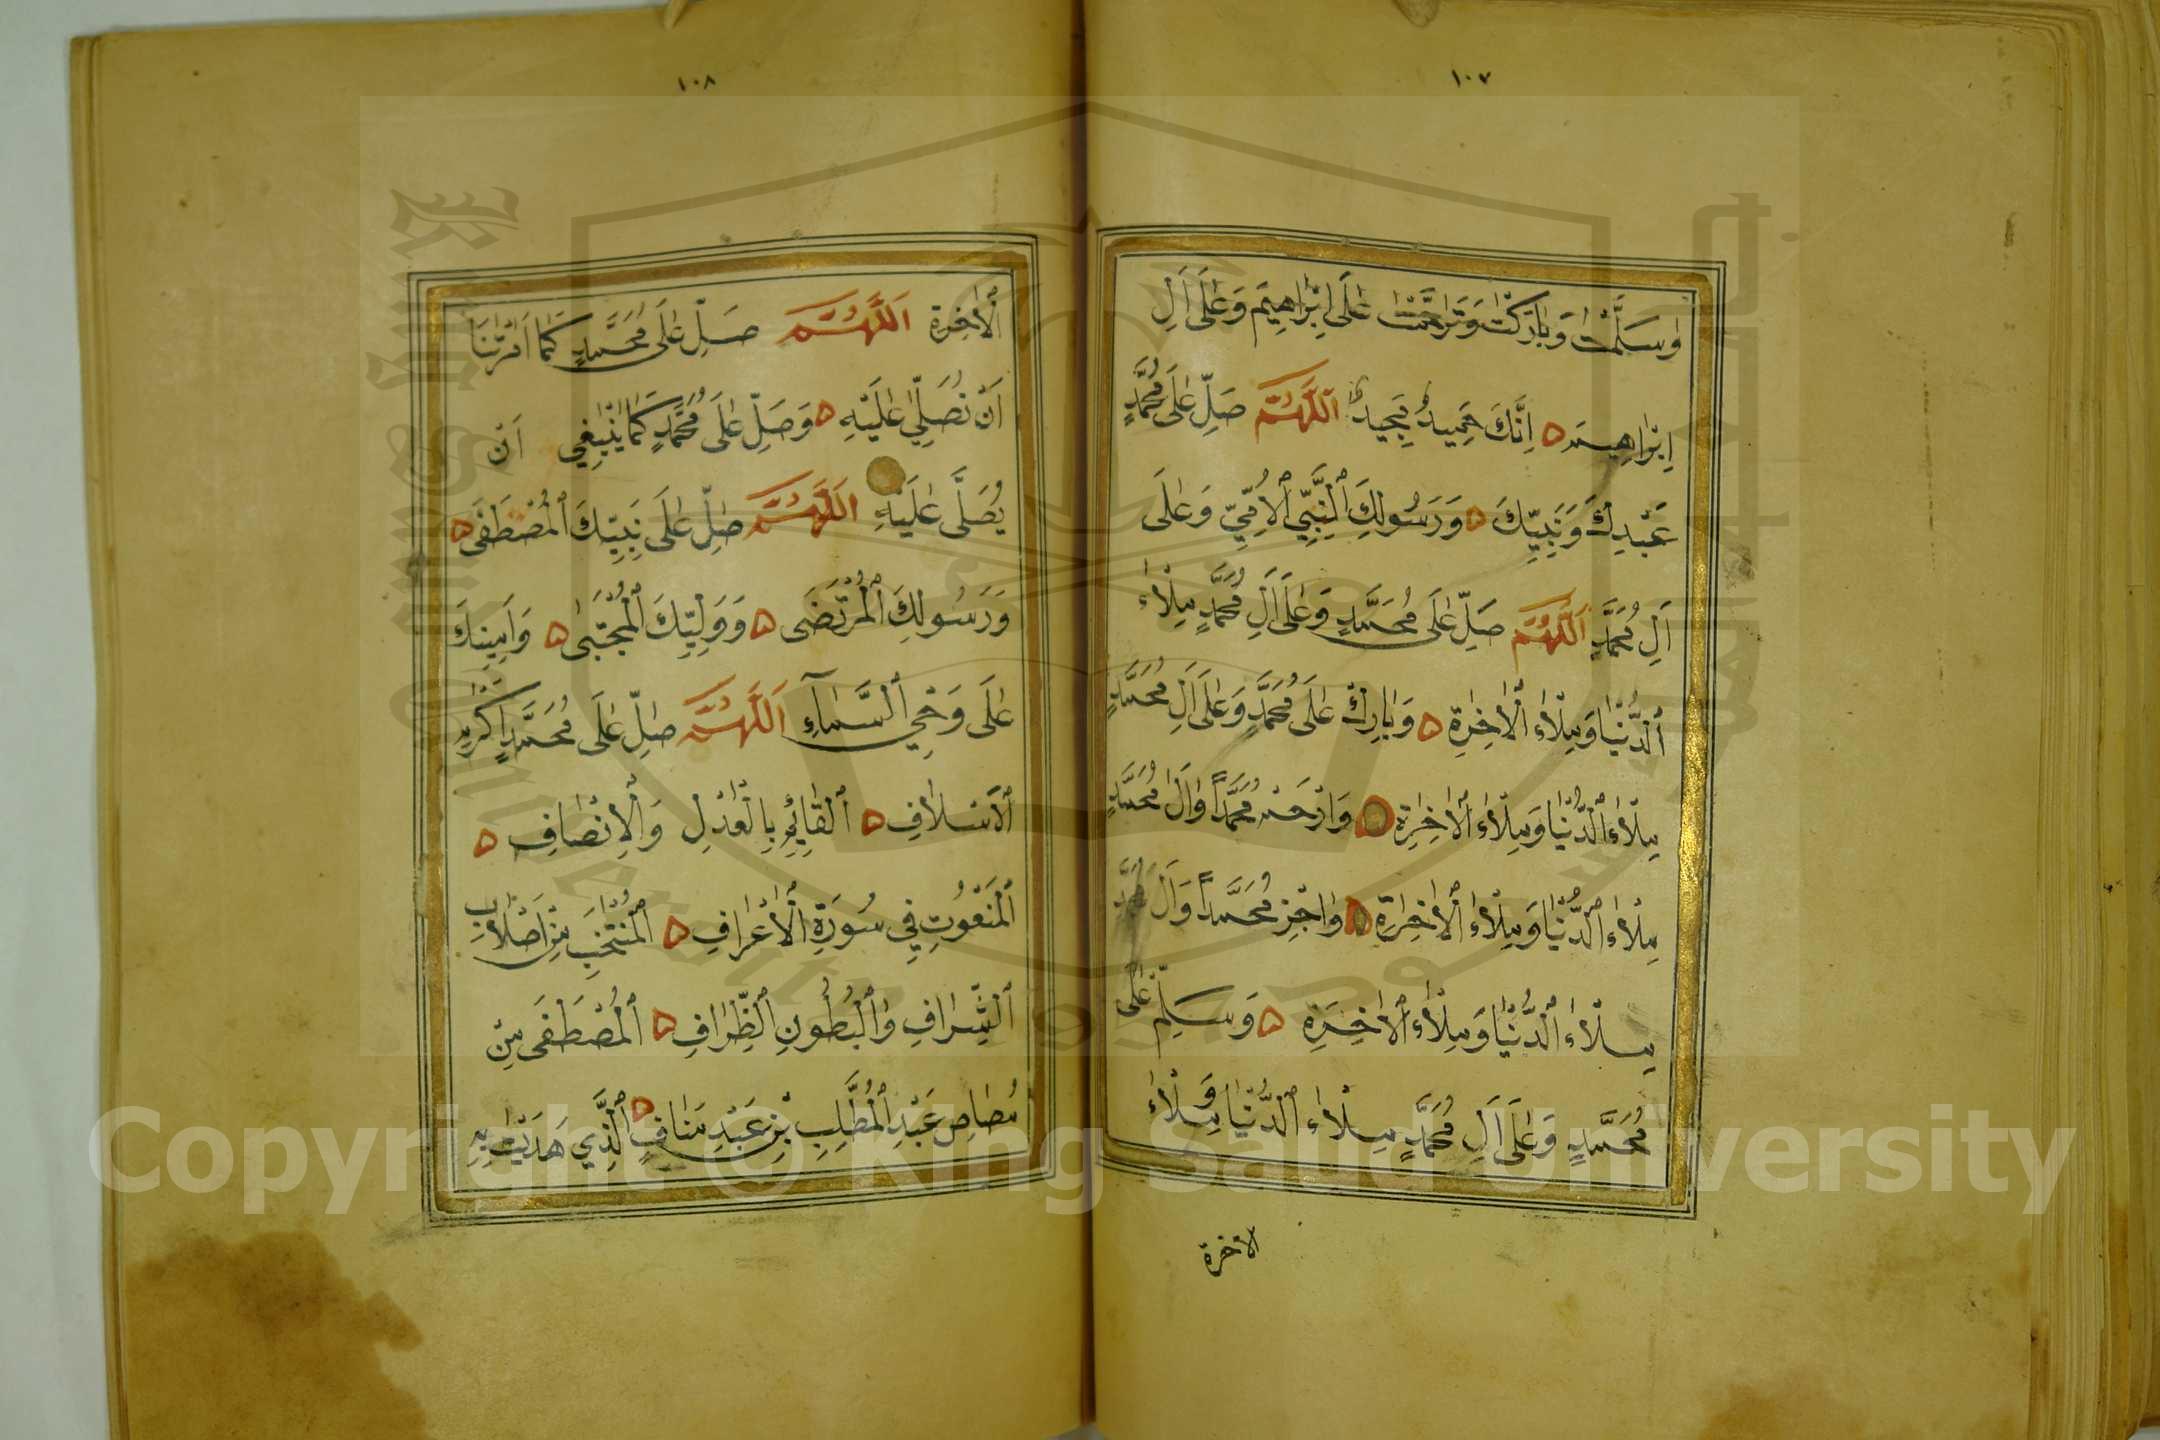 ١٠٧
وَسَلَّمْتَ وَبَارَكْتَ وَتَرَحَّمْتَ عَلَى اِبْرَاهِيمَ وَعَلَى اٰلِ
اِبْرَاهِيمَ اِنَّكَ حَمِيدٌ مَجِيدٌ اَللّٰهُمَّ صَلِّ عَلَى مُحَمَّدٍ
عَبْدِكَ وَنَبِيِّكَ وَرَسُولِكَ النَّبِيِّ الْاُمِّيِّ وَعَلَى
اٰلِ مُحَمَّدٍ اَللّٰهُمَّ صَلِّ عَلَى مُحَمَّدٍ وَعَلَى اٰلِ مُحَمَّدٍ مِلْاَءَ
الدُّنْيَا وَمِلْاَءَ الْاٰخِرَةِ وَبَارِكْ عَلَى مُحَمَّدٍ وَعَلَى اٰلِ مُحَمَّدٍ
مِلْاَءَ الدُّنْيَا وَمِلْاَءَ الْاٰخِرَةِ وَارْحَمْ مُحَمَّدًا وَاٰلَ مُحَمَّدٍ
مِلْاَءَ الدُّنْيَا وَمِلْاَءَ الْاٰخِرَةِ وَاجْزِ مُحَمَّدًا وَاٰلَ مُحَمَّدٍ
مِلْاَءَ الدُّنْيَا وَمِلْاَءَ الْاٰخِرَةِ وَسَلِّمْ عَلَى
مُحَمَّدٍ وَعَلَى اٰلِ مُحَمَّدٍ مِلْاَءَ الدُّنْيَا وَمِلْاَءَ
الاخرة
١٠٨
الْاٰخِرَةِ اَللّٰهُمَّ صَلِّ عَلَى مُحَمَّدٍ كَمَا اَمَرْتَنَا
اَنْ نُصَلِّيَ عَلَيْهِ وَصَلِّ عَلَى مُحَمَّدٍ كَمَا يَنْبَغِي اَنْ
يُصَلَّى عَلَيْهِ اَللّٰهُمَّ صَلِّ عَلَى نَبِيِّكَ الْمُصْطَفَى
وَرَسُولِكَ الْمُرْتَضَى وَوَلِيِّكَ الْمُجْتَبَى وَاَمِينِكَ
عَلَى وَحْيِ السَّمَآءِ اَللّٰهُمَّ صَلِّ عَلَى مُحَمَّدٍ اَكْرَمِ
الْاَسْلَافِ الْقَائِمِ بِالْعَدْلِ وَالْاِنْصَافِ
الْمَنْعُوتِ فِي سُورَةِ الْاَعْرَافِ الْمُنْتَخَبِ مِنْ اَصْلَابِ
الشِّرَافِ وَالْبُطُونِ الظِّرَافِ الْمُصْطَفَى مِنْ
مُصَاصِ عَبْدِ الْمُطَّلِبِ بْنِ عَبْدِ مَنَافٍ الَّذِي هَدَيْتَ بِهِ
Copyright © King Saud University